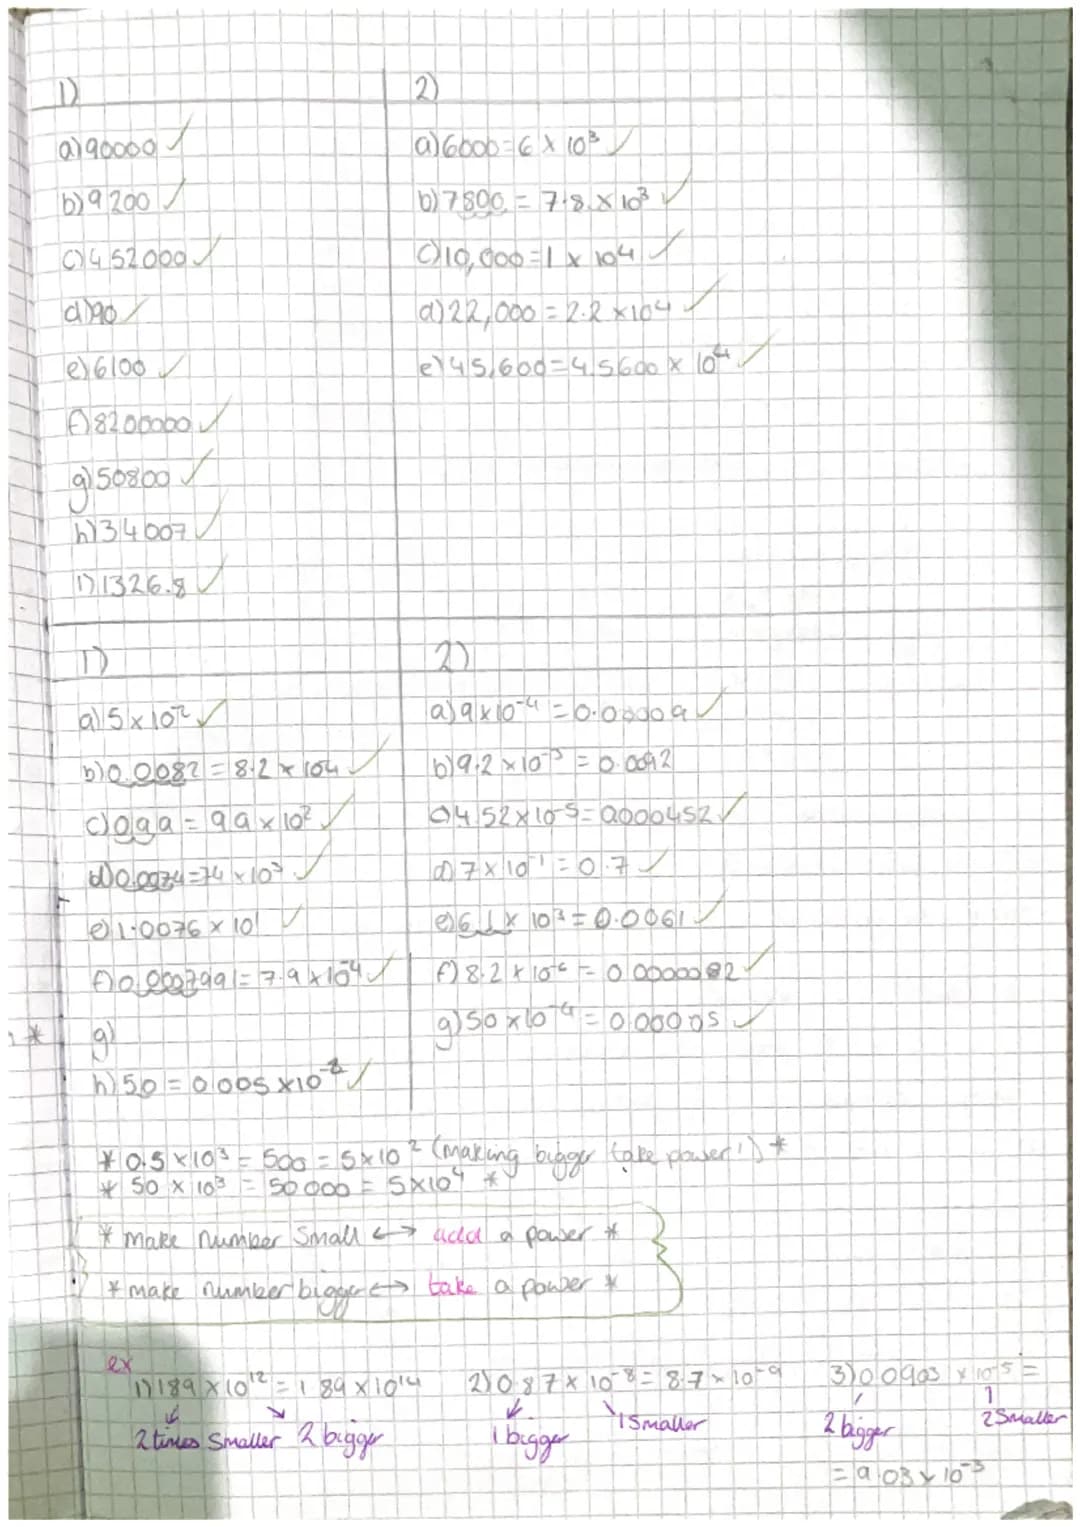 1)
a) 90000 ✓
b) 9200 ✓
c) 452000 ✓
d) 90 ✓
e) 6100 ✓
f) 8200000 ✓
g) 50800 ✓
h) 34007 ✓
i) 1326.8 ✓
2)
a) 6000 = 6 × 10³ ✓
b) 7800 = 7.8 × 10³ ✓
c) 10,000 = 1 × 10⁴ ✓
d) 22,000 = 2.2 × 10⁴ ✓
e) 45,600 = 4.5600 × 10⁴ ✓
1)
a) 5 × 10⁻² ✓
b) 0.0082 = 8.2 × 10⁴ ✓
c) 0.99 = 99 × 10² ✓
d) 0.0074 = 74 × 10³ ✓
e) 1.0076 × 10¹ ✓
f) 0.000799 = 7.9 × 10⁻⁴ ✓
* g)
h) 50 = 0.005 × 10⁻² ✓
2)
a) 9 × 10⁻⁴ = 0.00009 ✓
b) 9.2 × 10⁻³ = 0.0092
c) 4.52 × 10⁻⁵ = 0.000452 ✓
d) 7 × 10⁻¹ = 0.7 ✓
e) 6.1 × 10³ = 0.0061 ✓
f) 8.2 × 10⁻⁶ = 0.0000082 ✓
g) 50 × 10⁻⁴ = 0.00005 ✓
* 0.5 × 10³ = 500 = 5 × 10² (making bigger take power!) *
* 50 × 10³ = 50000 = 5 × 10⁴ *
* make number small ↔ add a power *
* make number bigger ↔ take a power *
ex
1) 189 × 10¹² = 1.89 × 10¹⁴
2 times smaller 2 bigger
2) 0.87 × 10⁻⁸ = 8.7 × 10⁻⁹
1 bigger 1 smaller
3) 0.0903 × 10⁻⁵ =
2 bigger 2 smaller
= 9.03 × 10⁻³